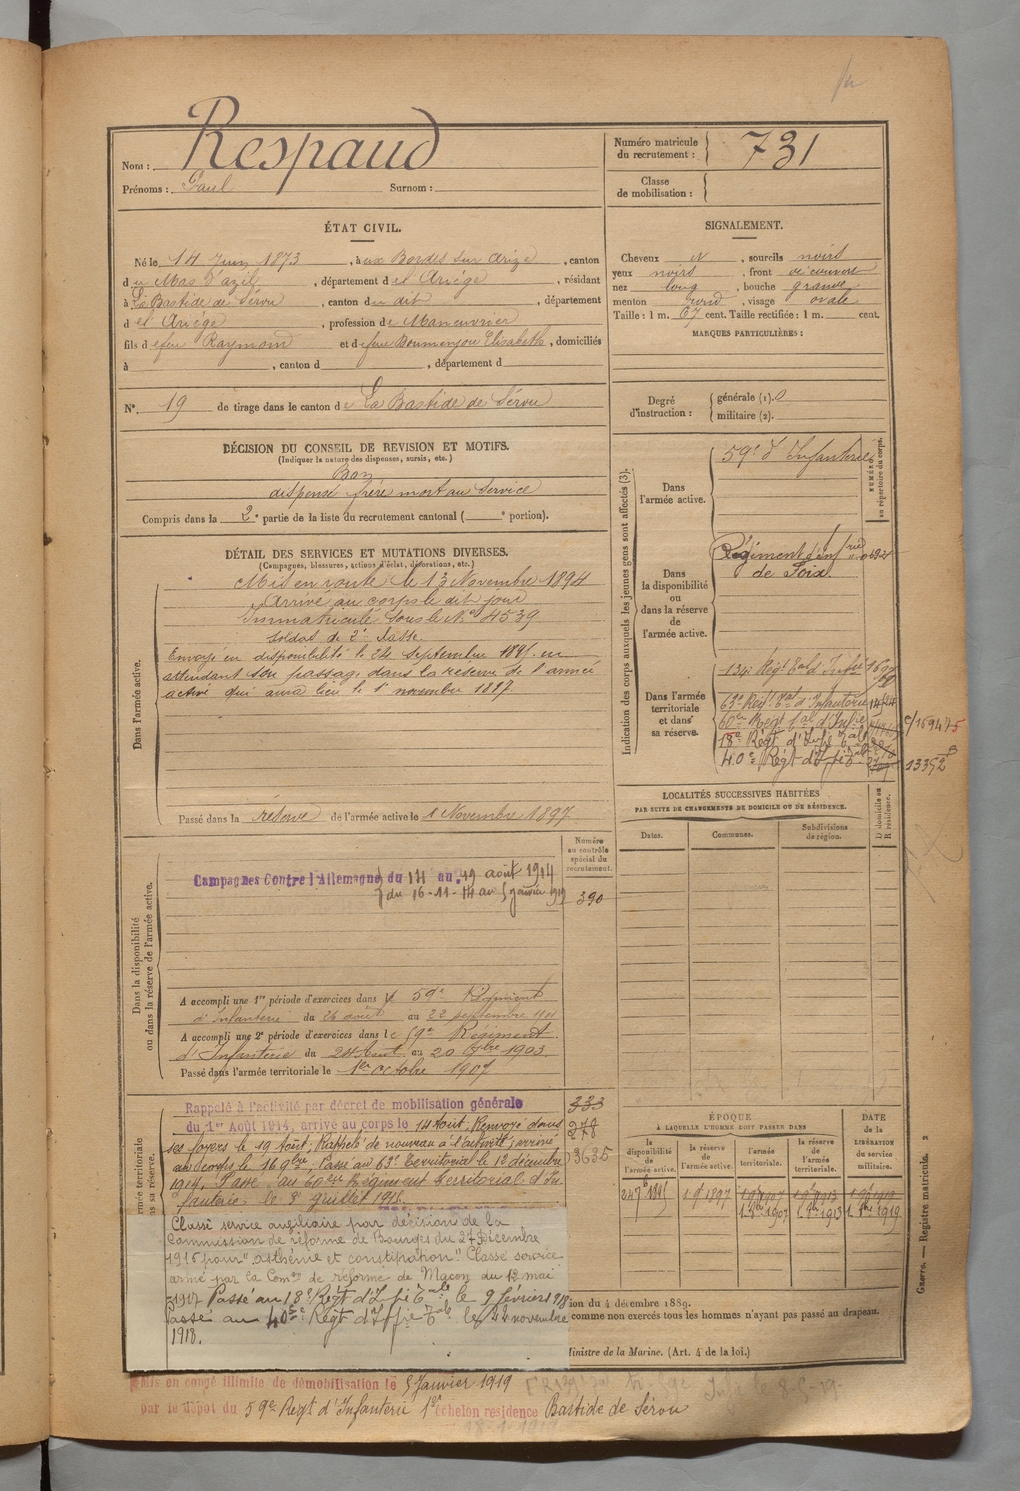 Nom : Respaud
Prénoms : Paul Surnom :
Numéro matricule du recrutement : 731
Classe de mobilisation :
ÉTAT CIVIL.
Né le 14 Juin 1873, à aux Bordes sur Arize, canton
du Mas d'azil, département de l'Ariége, résidant
à La Bastide de Sérou, canton du dit, département
de l'Ariége, profession de Manouvrier
fils de feu Raymond et de feue Boumenjou Elisabeth, domiciliés
à , canton d , département d
N° 19 de tirage dans le canton de La Bastide de Sérou
SIGNALEMENT.
Cheveux N, sourcils noirs
yeux noirs, front découvert
nez long, bouche grande
menton rond, visage ovale
Taille : 1 m. 67 cent. Taille rectifiée : 1 m. cent.
MARQUES PARTICULIÈRES :
Degré d'instruction : générale (1). 0
militaire (2).
DÉCISION DU CONSEIL DE REVISION ET MOTIFS.
(Indiquer la nature des dispenses, sursis, etc.)
Bon
dispensé frère mort au service
Compris dans la 2e partie de la liste du recrutement cantonal ( e portion).
DÉTAIL DES SERVICES ET MUTATIONS DIVERSES.
(Campagnes, blessures, actions d'éclat, décorations, etc.)
Dans l'armée active.
Mis en route le 13 Novembre 1894
Arrivé au corps le dit jour
Immatriculé sous le N° 4539
Soldat de 2e classe.
Envoyé en disponibilité le 24 septembre 1895 en
attendant son passage dans la réserve de l'armée
active qui aura lieu le 1er novembre 1897.
Passé dans la réserve de l'armée active le 1 Novembre 1897
Dans la disponibilité ou dans la réserve de l'armée active.
Numéro au contrôle spécial du recrutement.
390
Campagnes Contre l'Allemagne du 14 au 19 août 1914
du 16-11-14 au 5 Janvier 1919
A accompli une 1re période d'exercices dans le 59e Régiment
d'Infanterie du 26 août au 22 septembre 1901
A accompli une 2e période d'exercices dans le 59e Régiment
d'Infanterie du 24 Août au 20 7bre 1903.
Passé dans l'armée territoriale le 1er octobre 1907
Rappelé à l'activité par décret de mobilisation générale
du 1er Août 1914, arrivé au corps le 14 Août, Renvoyé dans
ses foyers le 19 Août, Rappelé de nouveau à l'activité; arrivé
au corps le 16 9bre, Passé au 63e Territorial le 12 décembre
1914. Passé au 60eme Régiment Territorial d'In-
fanterie le 8 Juillet 1915.
333
278
3635
Classé service auxiliaire par décision de la
Commission de réforme de Bourges du 27 Décembre
1916 pour "asthénie et constipation". Classé service
armé par la Comon de réforme de Macon du 12 mai
1917 Passé au 18e Régt d'Ifie Tale le 9 février 1918
Passé au 40eme Régt d'Iffie Tale le 22 novembre
1918.
Mis en congé illimité de démobilisation le 5 Janvier 1919
par le dépot du 59e Regt d'Infanterie 1er échelon residence Bastide de Sérou
Indication des corps auxquels les jeunes gens sont affectés (3).
NUMÉRO au répertoire du corps.
Dans l'armée active.
59e d'Infanterie
Dans la disponibilité ou dans la réserve de l'armée active.
Régiment d'Infrie
de Foix.
Dans l'armée territoriale et dans sa réserve.
134e Régt Eal d'Infie
63e Régt Eal d'Infanterie
60eme Regt Eal d'Infie
18e Régt d'Infie Tale
40e Régt d'Ifie Tale
c/169475
13352
LOCALITÉS SUCCESSIVES HABITÉES
PAR SUITE DE CHANGEMENTS DE DOMICILE OU DE RÉSIDENCE.
Dates. Communes. Subdivisions de région. D domicile ou R résidence.
ÉPOQUE
A LAQUELLE L'HOMME DOIT PASSER DANS
DATE de la LIBÉRATION du service militaire.
la disponibilité de l'armée active. la réserve de l'armée active. l'armée territoriale. la réserve de l'armée territoriale.
24 7b 1895 1 9b 1897 1 9b 1907 1 9b 1913 1 9b 1919
1. 8bre 1907 1. 8bre 1913 1. 8bre 1919
ion du 4 décembre 1889.
comme non exercés tous les hommes n'ayant pas passé au drapeau.
Ministre de la Marine. (Art. 4 de la loi.)
Guerre. — Registre matricule. 2